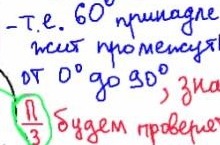 -т.е. 60° принадле
жит промежут
от 0° до 90°, зна
П/3 будем провер